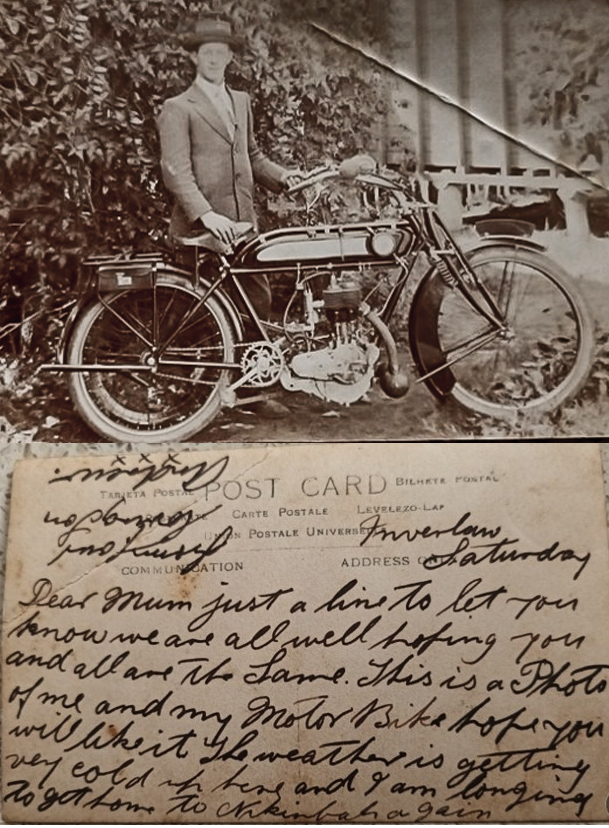 TARJETA POSTAL POST CARD BILHETE POSTAL
CARTE POSTALE LEVELEZO-LAP
UNION POSTALE
COMMUNICATION ADDRESS
Inverlaw
Saturday
Dear Mum just a line to let you
know we are all well hoping you
and all are the Same. This is a Photo
of me and my Motor Bike hope you
will like it The weather is getting
very cold up here and I am longing
to get home to Nikinbah again
From your
Loving Son
x x x